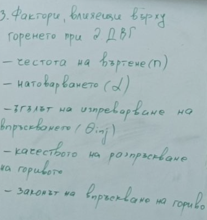 3. Фактори, влияещи върху
горенето при 2 ДВГ
- честота на въртене (n)
- натоварването (α)
- ъгълът на изпреварване на
впръскването (Θinj)
- качеството на разпръскване
на горивото
- законът на впръскване на гориво